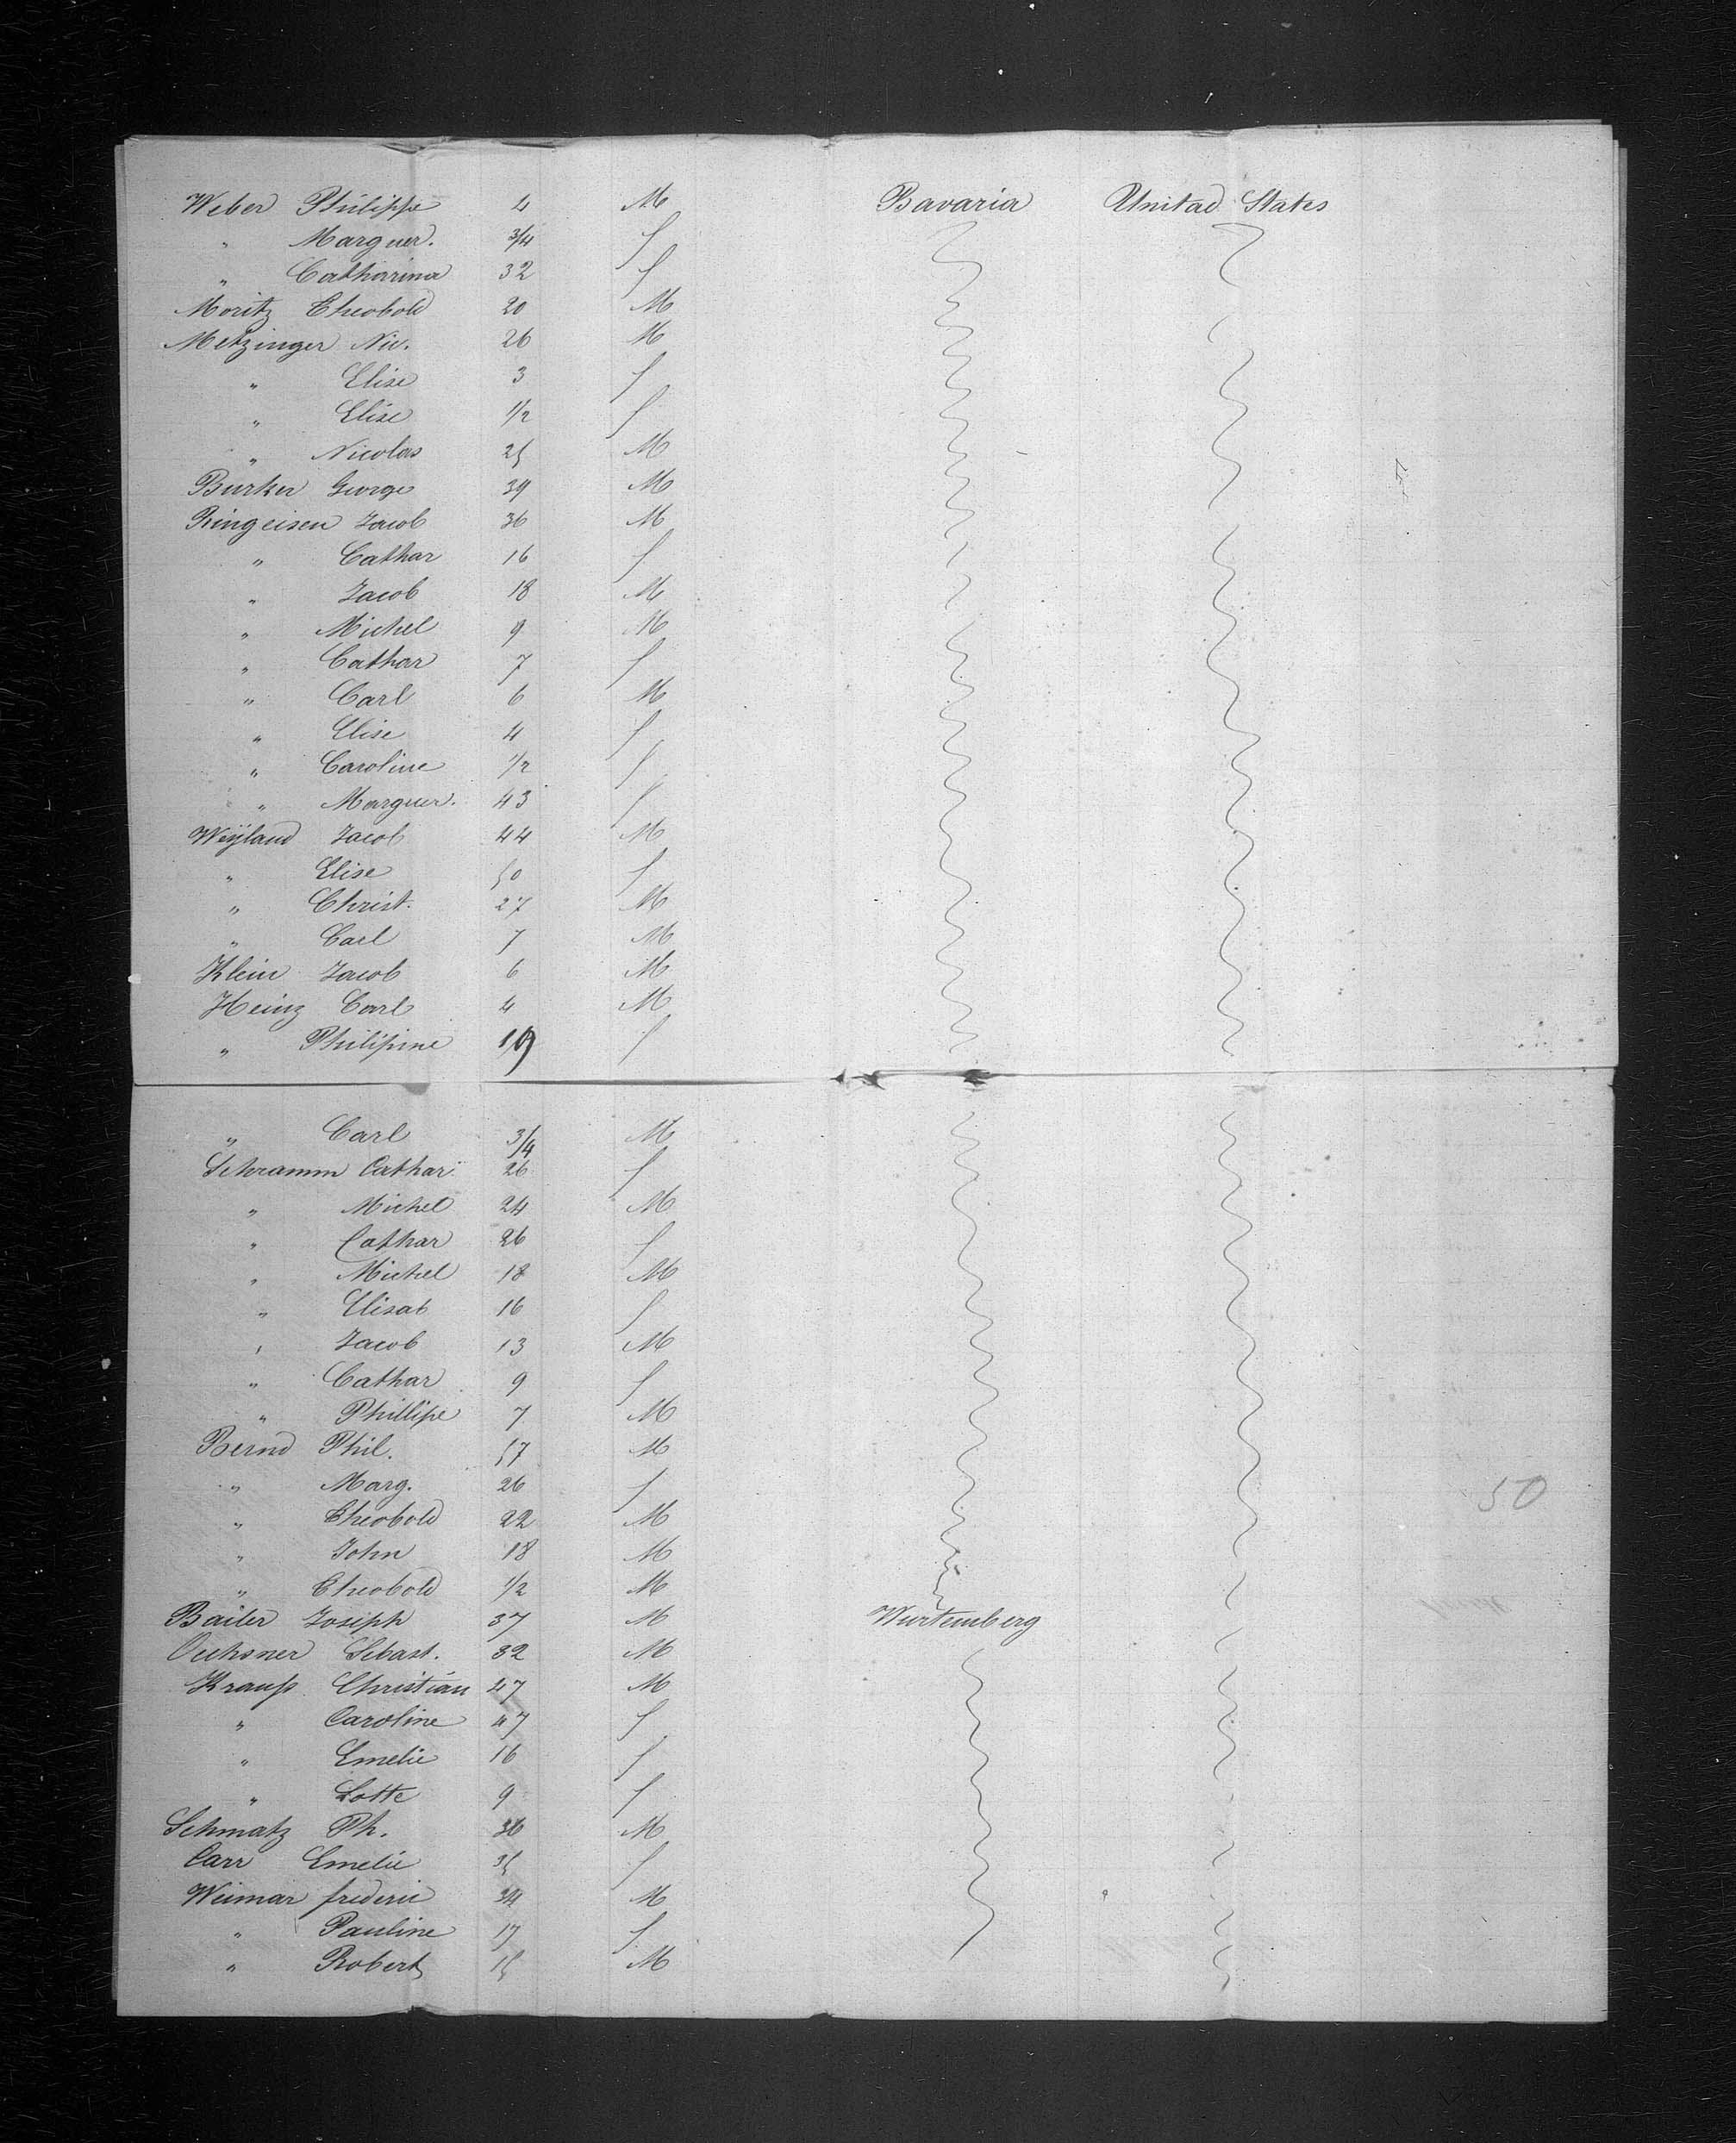 Weber Philippe 4 M Bavaria Unitad States
" Marguer. 3/4 f
" Catharina 32 f
Moritz Theobold 20 M
Metzinger Nic. 26 M
" Elise 3 f
" Elise 1/2 f
" Nicolas 25 M
Burker George 39 M
Ringeisen Jacob 36 M
" Cathar 16 f
" Jacob 18 M
" Michel 9 M
" Cathar 7 f
" Carl 6 M
" Elise 4 f
" Caroline 1/2 f
" Marguer. 43 f
Weyland Jacob 44 M
" Elise 50 f
" Christ. 27 M
" Carl 7 M
Klein Jacob 6 M
Heinz Carl 4 M
" Philipine 19 f
" Carl 3/4 M
Schramm Cathar 26 f
" Michel 24 M
" Cathar 26 f
" Michel 18 M
" Elisab 16 f
" Jacob 13 M
" Cathar 9 f
" Phillipe 7 M
Bernd Phil. 57 M
" Marg. 26 f
50
" Theobold 22 M
" John 18 M
" Theobold 1/2 M
Bailer Joseph 37 M Wurtemberg
Oechsner Sebast. 32 M
Krauß Christian 47 M
" Caroline 47 f
" Emelie 16 f
" Lotte 9 f
Schmatz Ph. 36 M
Carr Emelie 35 f
Weimar frederic 34 M
" Pauline 17 f
" Robert 15 M